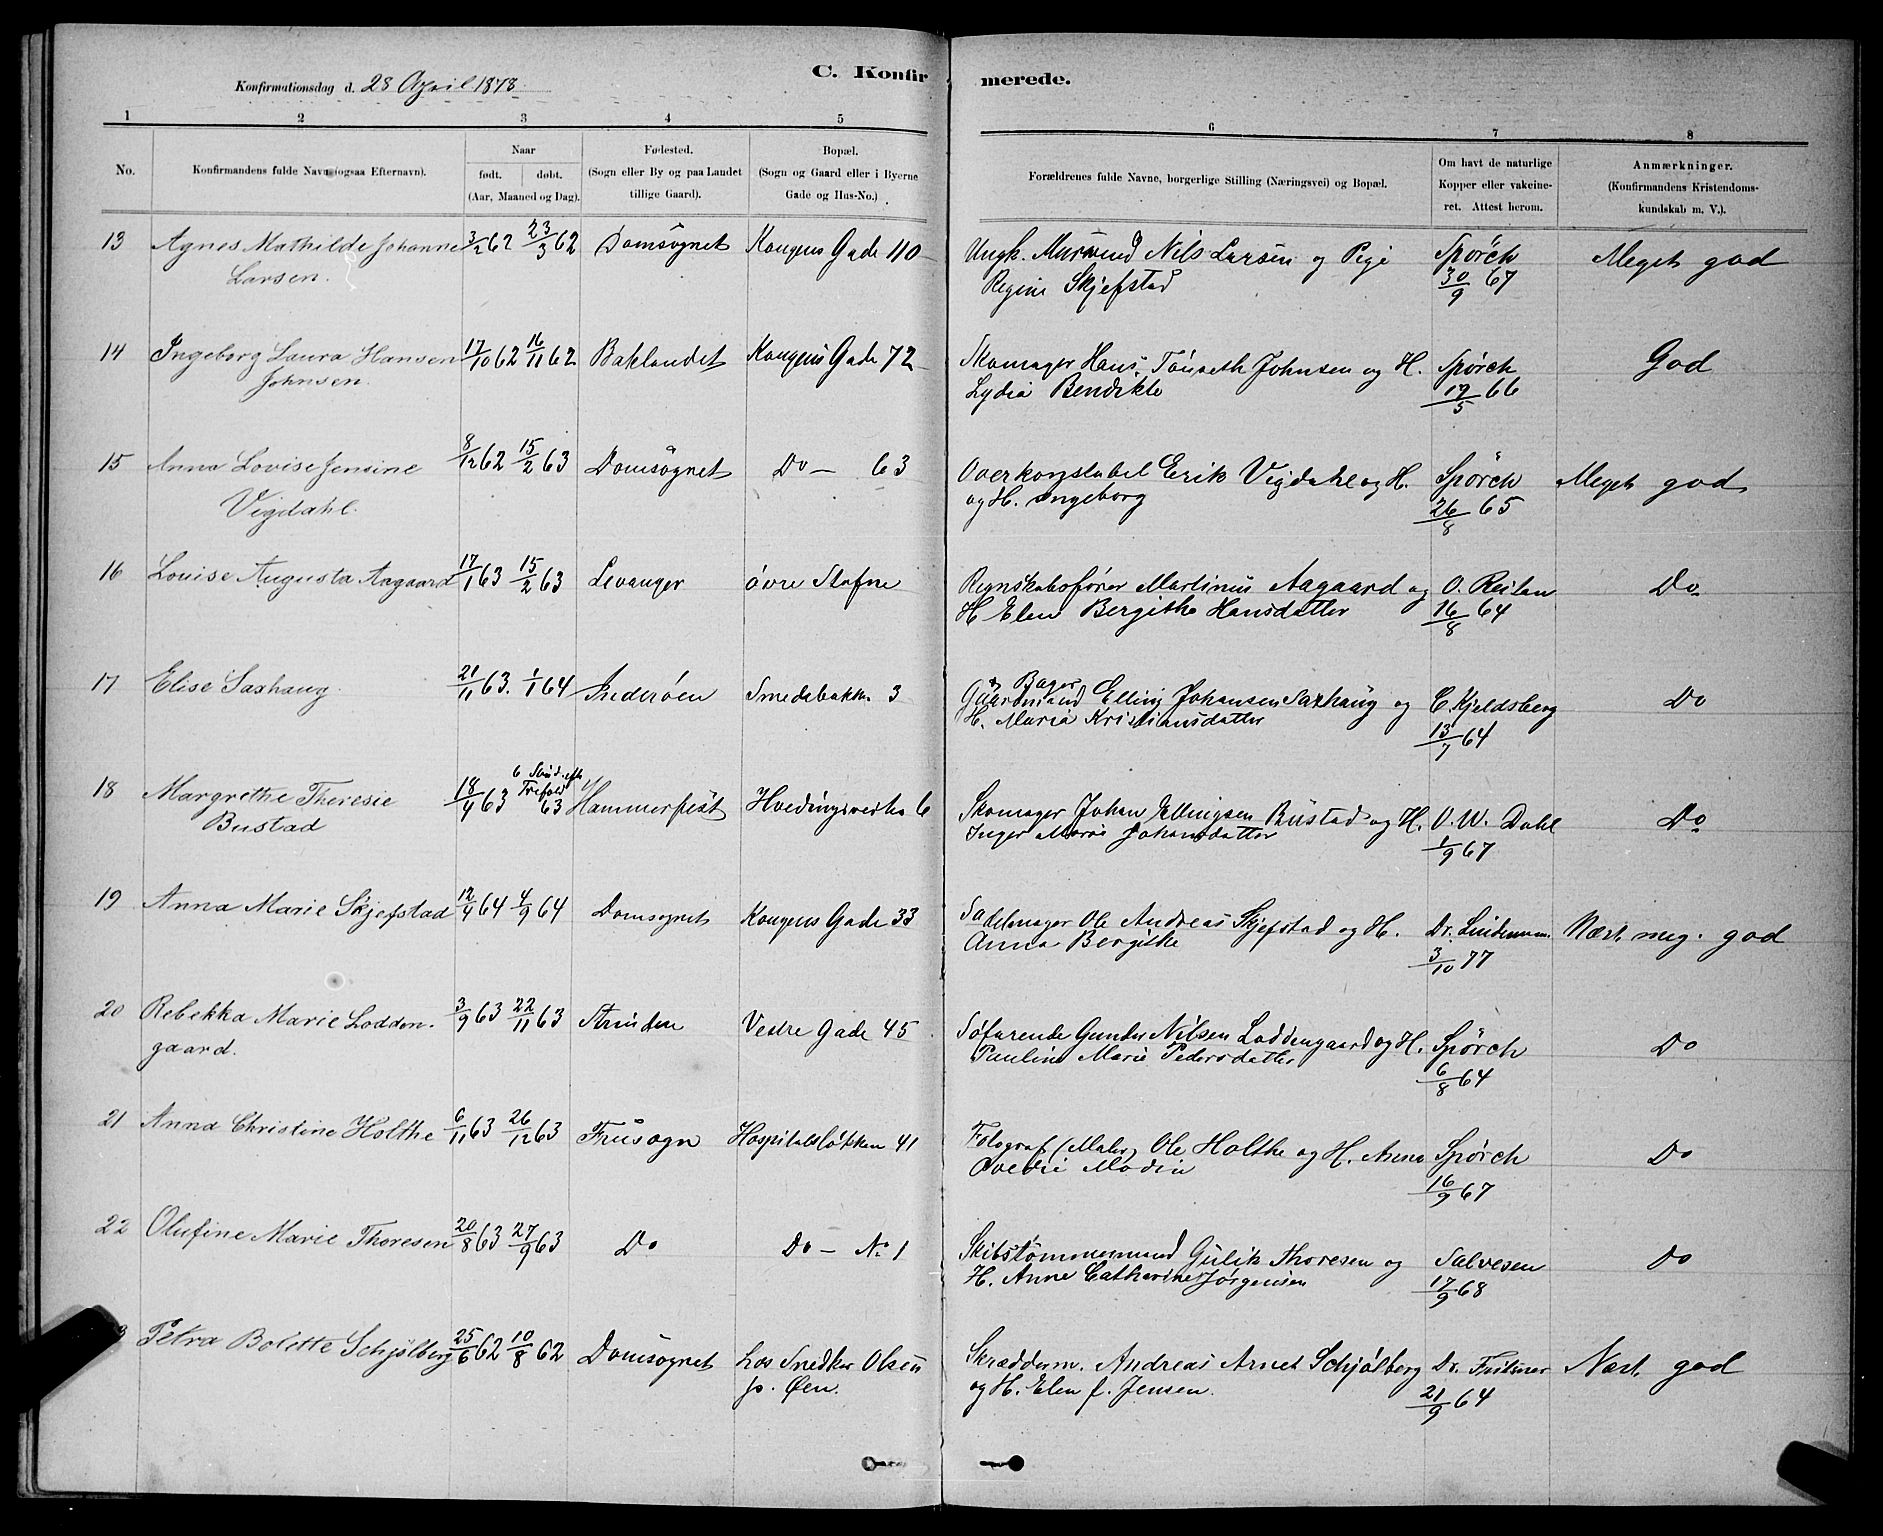 Konfirmationsdag d. 28 April 1878.
C. Konfirmerede.
1 2 3 4 5 6 7 8
No.
Konfirmandens fulde Navn (ogsaa Efternavn).
Naar
født. døbt.
(Aar, Maaned og Dag).
Fødested.
(Sogn eller By og paa Landet
tillige Gaard).
Bopæl.
(Sogn og Gaard eller i Byerne
Gade og Hus-No.)
Forældrenes fulde Navne, borgerlige Stilling (Næringsvei) og Bopæl.
Om havt de naturlige
Kopper eller vakcine-
ret. Attest herom.
Anmærkninger.
(Konfirmandens Kristendoms-
kundskab m. V.).
13 Agnes Mathilde Johanne 3/2 62 23/3 62 Domsognet Kongens Gade 110 Ungk. Nils Larsen og Pige Spørch Meget god
Larsen. Regine Skjefstad 30/9 67
14 Ingeborg Laura Hansen 17/10 62 16/11 62 Baklandet Kongens Gade 72 Skomager Hans Tönseth Johnsen og H. Spørch God
Johnsen. Lydia Bendikte 12/5 66
15 Anna Lovise Jensine 8/12 62 15/2 63 Domsognet Do - 63 Overkonstabel Erik Vigdahl og H. Spørch Meget god
Vigdahl. og H. Ingeborg 26/8 65
16 Louise Augusta Aagaard 17/1 63 15/2 63 Levanger övre Stafne Regnskabsfører Martinus Aagaard og O. Reitan Do
H. Elen Bergithe Hansdatter 16/8 64
17 Elise Saxhaug. 21/11 63. 1/1 64 Inderöen Smedebakken 3 Gaardmand & Bager Elling Johansen Saxhaug og C. Kjeldsberg Do
H. Maria Kristiansdatter 13/7 64
18 Margrethe Theresie 18/4 63 6 Sönd. eft. Trefold. 63 Hammerfest Hvedingsveita 6 Skomager Johan Ellingsen Bustad og H. O. W. Dahl Do
Bustad Inger Maria Johansdatter 1/9 67
19 Anna Marie Skjefstad 12/4 64 4/9 64 Domsognet Kongens Gade 33 Sadelmager Ole Andreas Skjefstad og H. Dr. Lindeman. Næst. meg. god
Anna Bergithe 3/10 77
20 Rebekka Marie Lodden- 3/9 63 22/11 63 Strinden Vestre Gade 45 Söfarende Gunder Nilsen Loddengaard og H. Spørch Do
gaard. Pauline Marie Pedersdatter 6/8 64
21 Anna Christine Holthe 6/11 63 26/12 63 Fruesogn Hospitalslökken 41 Fotograf (Maler) Ole Holthe og H. Anna Spørch Do
Ovedie Modin 16/9 67
22 Olufine Marie Thoresen 20/8 63 27/9 63 Do Do - No 1 Skibstömmermand Gulik Thoresen og Salvesen Do
H. Anne Catharine Jörgensen 17/9 68
3 Petra Bolette Schjølberg 25/6 62 10/8 62 Domsognet hos Snedker Olsen Skrædderm. Andreas Arnet Schjølberg Dr. Næst. god
p. Øen. og H. Elen f. Jensen. 21/9 64